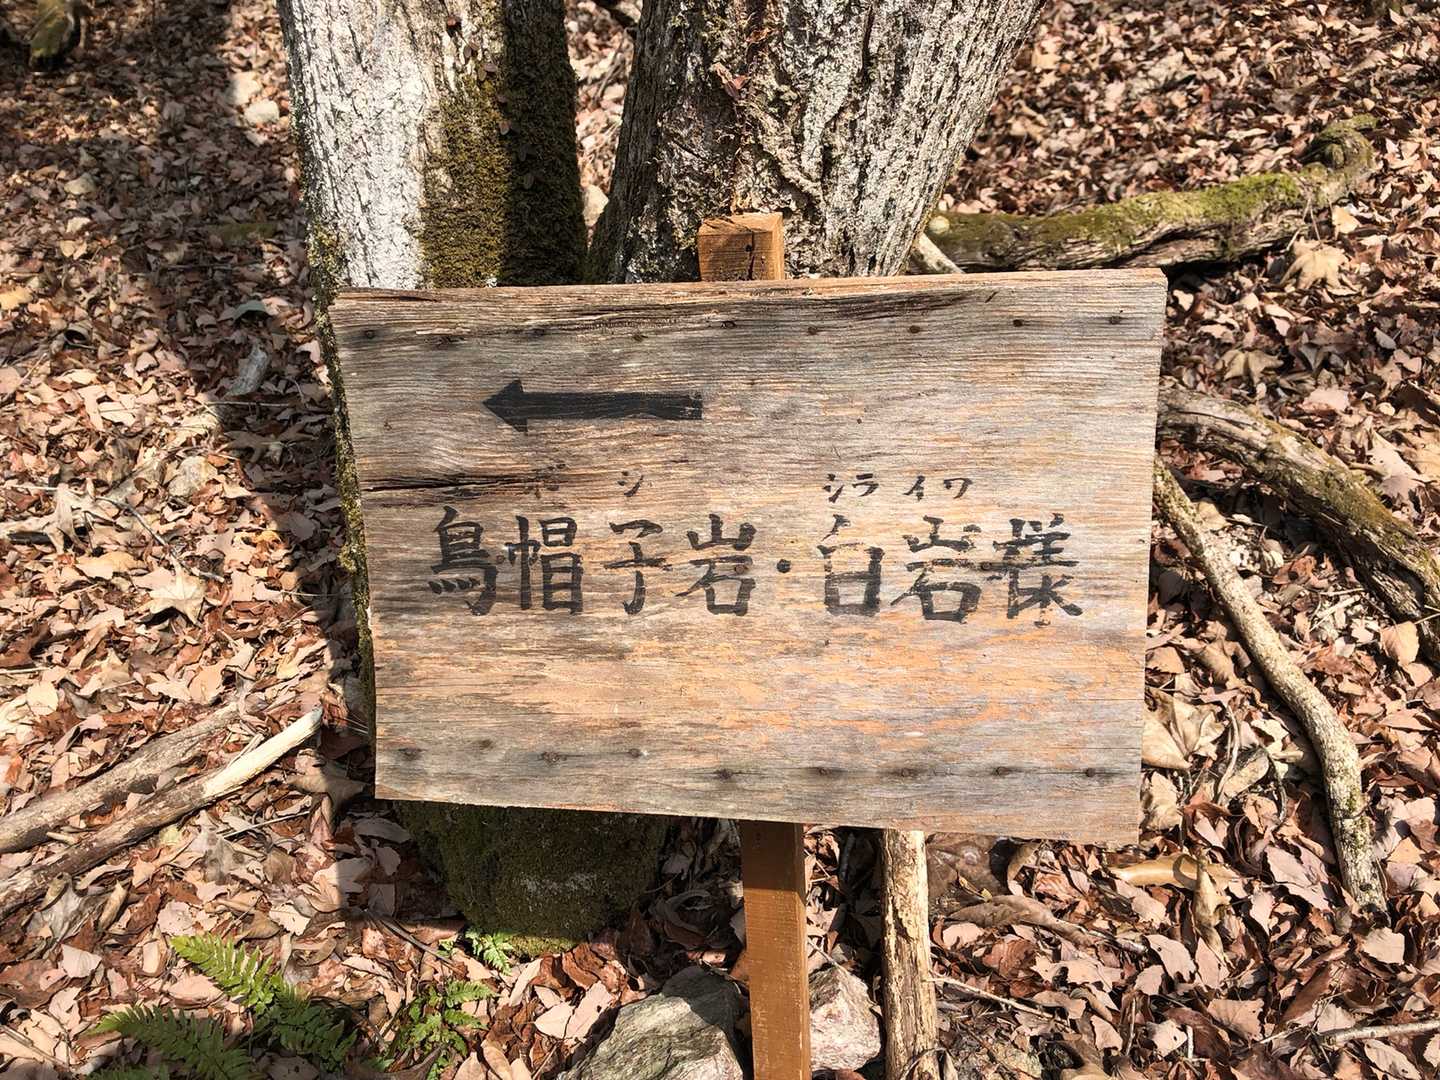 エボシ シライワ
烏帽子岩・白岩様